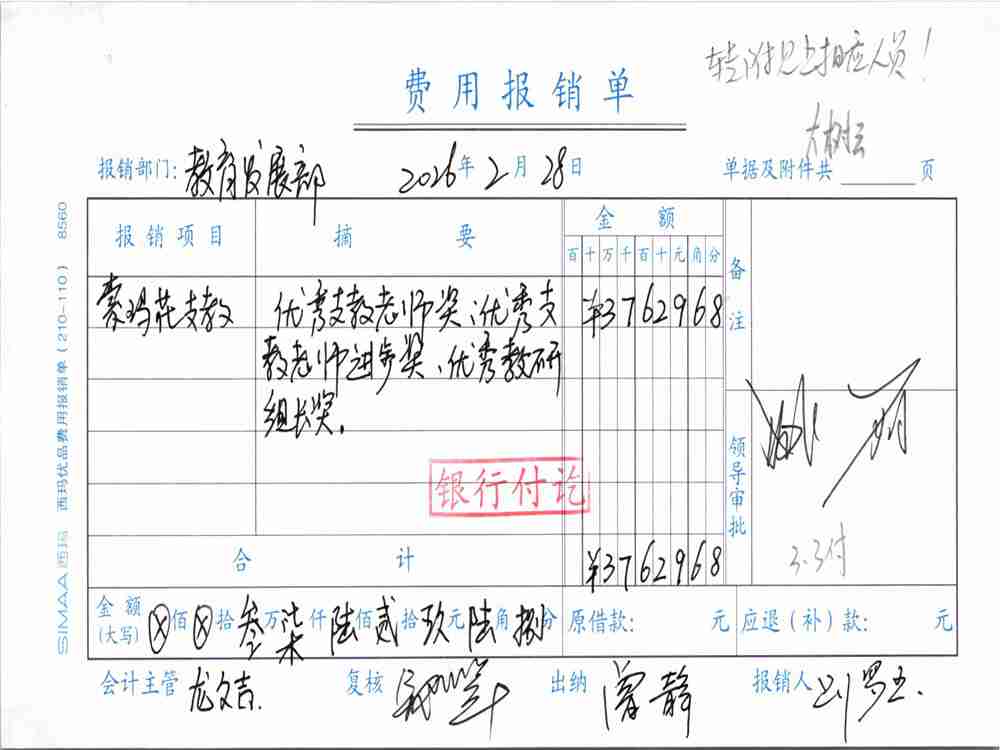 转附只上相应人员！
费用报销单
报销部门：教育发展部 2026年2月28日 单据及附件共 页
报销项目 摘要 金额 备注
百十万千百十元角分
索玛花支教 优秀支教老师奖、优秀支 ¥3762968
教老师进步奖、优秀教研
组长奖。
银行付讫
领导审批
3.3付
合计 ¥3762968
金额(大写) ⓧ佰ⓧ拾叁万柒仟陆佰贰拾玖元陆角捌分 原借款： 元 应退（补）款： 元
会计主管 龙文吉. 复核 出纳 曾静 报销人
SIMAA 西玛 西玛优品费用报销单（210-110） 8560